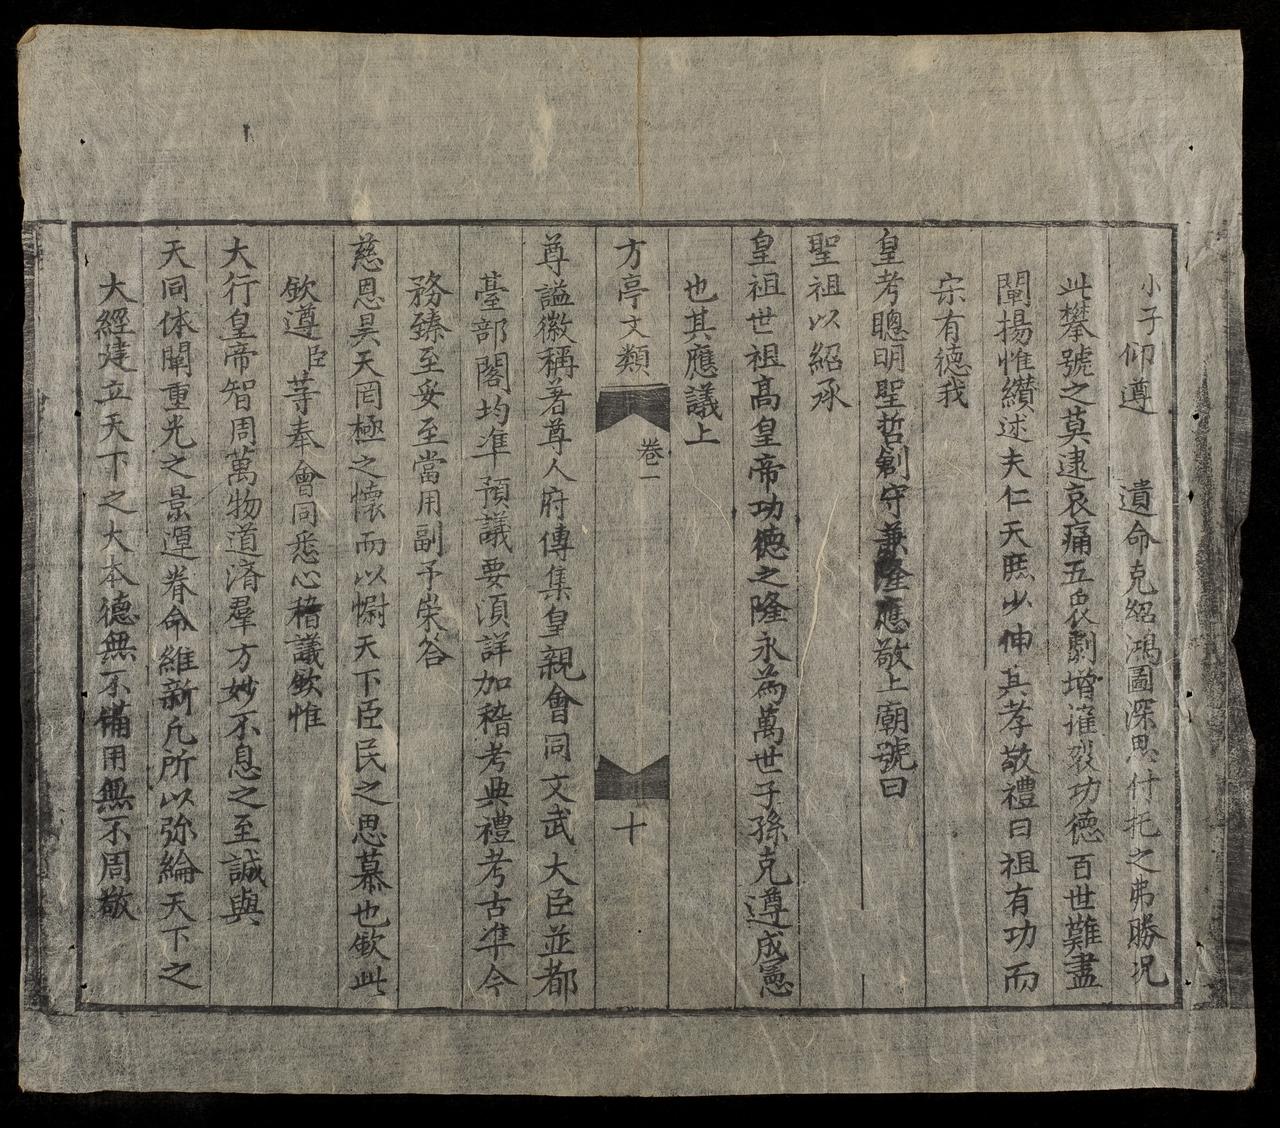 小子仰遵　遺命克紹鴻圖深思付托之弗勝况
此攀號之莫逮哀痛五衷劇增摧裂功德百世難盡
闡揚惟纘述夫仁天庶少伸其孝敬禮曰祖有功而
宗有德我
皇考聰明聖哲創守兼隆應敬上廟號曰
聖祖以紹承
皇祖世祖髙皇帝功德之隆永為萬世子孫克遵成憲
也其應議上
方亭文類
卷一
十
尊謚徽稱著尊人府傳集皇親會同文武大臣並都
臺部閣均准預議要湏詳加稽考典禮考古准今
務臻至妥至當用副予荣答
慈恩昊天罔極之懷而以慰天下臣民之思慕也欽此
欽遵臣等奉會同悉心稽議欽惟
大行皇帝智周萬物道濟羣方妙不息之至誠與
天同体闡重光之景運眷命維新凡所以弥綸天下之
大經建立天下之大本德無不備用無不周敬